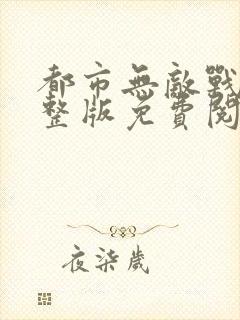 都市無敵戰
整版免費閱
夜柒歲